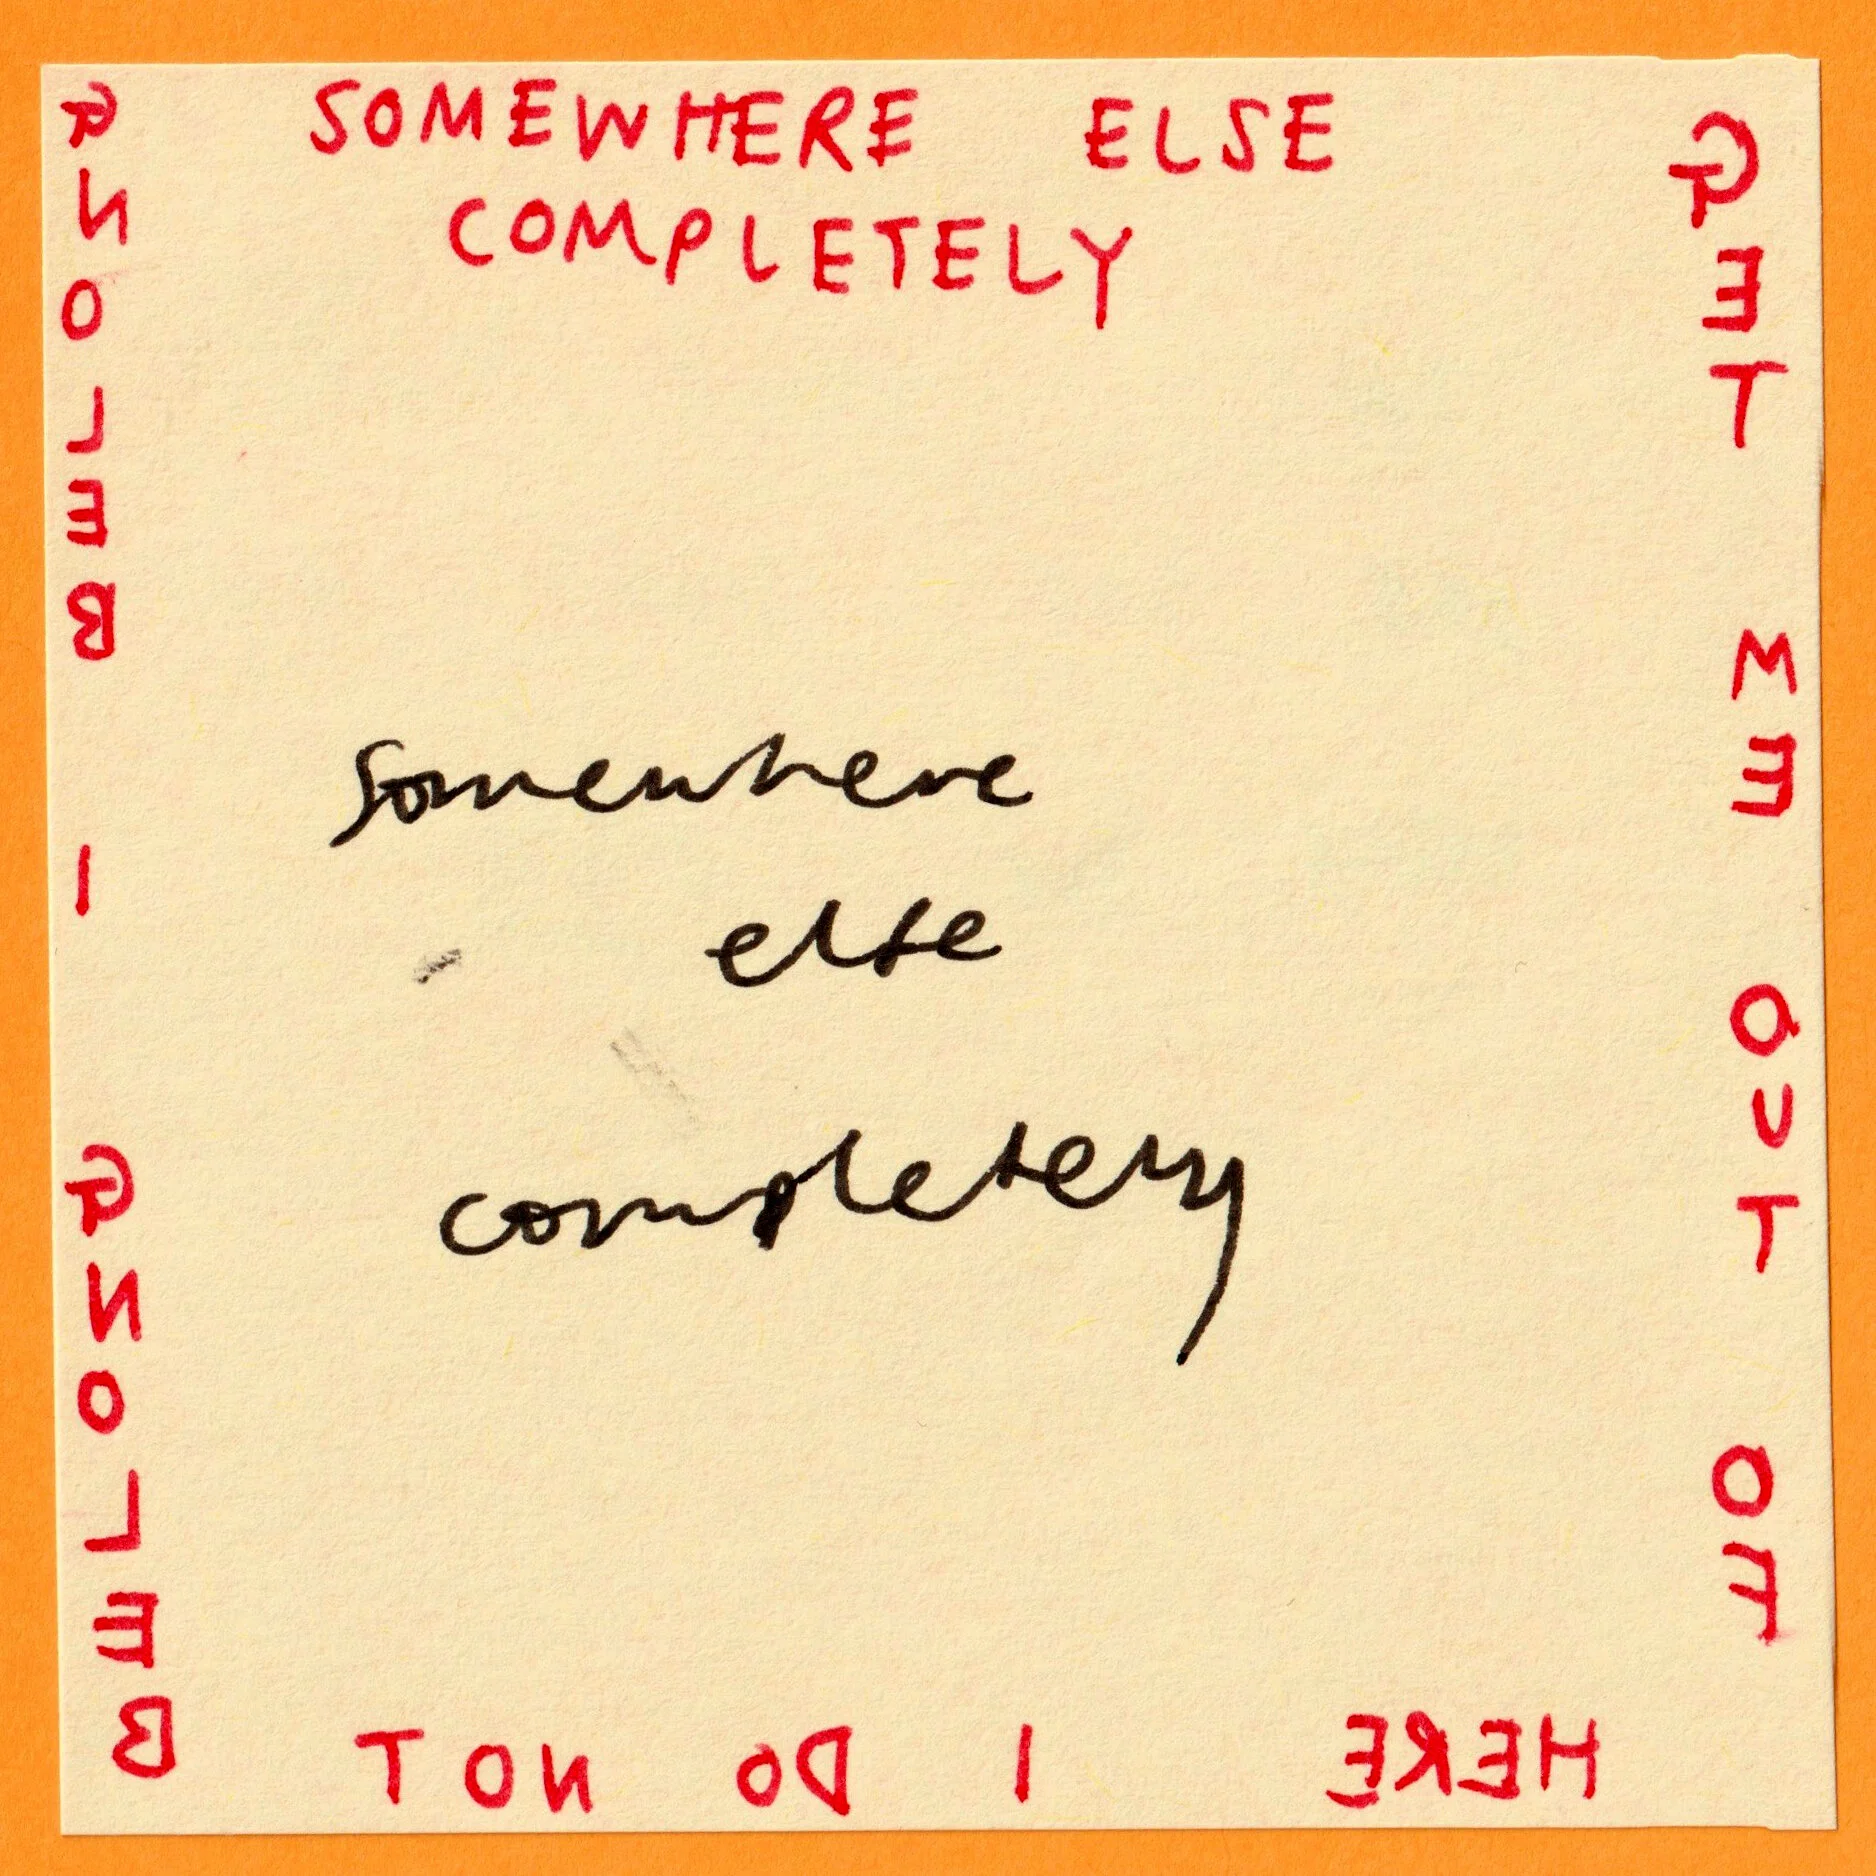 SOMEWHERE ELSE
COMPLETELY
GET ME OUT OF
HERE I DO NOT
BELONG I BELONG
somewhere
else
completely